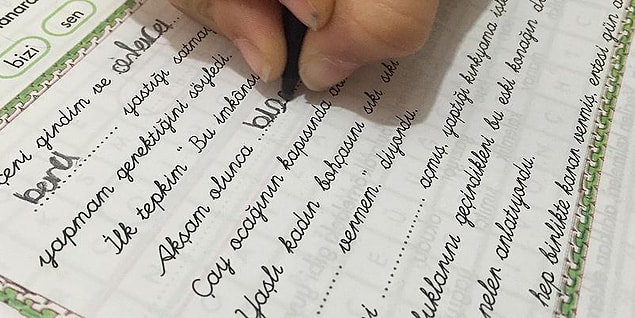 anarak
bizi
sen
içeri girdim ve onlara
bana ............ yastığı satmay
yapmam gerektiğini söyledi.
İlk tepkim "Bu imkânsı
Akşam olunca biz
Çay ocağının kapısında
Yaşlı kadın bohçasını sıkı sıkı
............ vermem." diyordu.
............ açmış, yaptığı kırkyama
uklarını geçindikleri bu eski konağın
neler anlatıyordu.
hep birlikte karar vermiş, ertesi gün